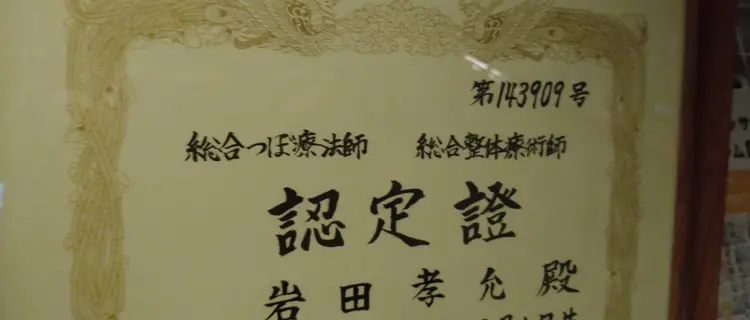 第143909号
総合つぼ療法師 総合整体療術師
認定證
岩田孝允殿